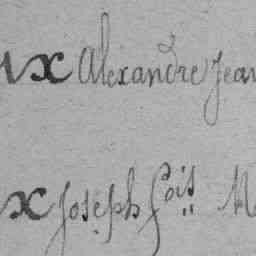 ux Alexandre Jean
x Joseph fois M